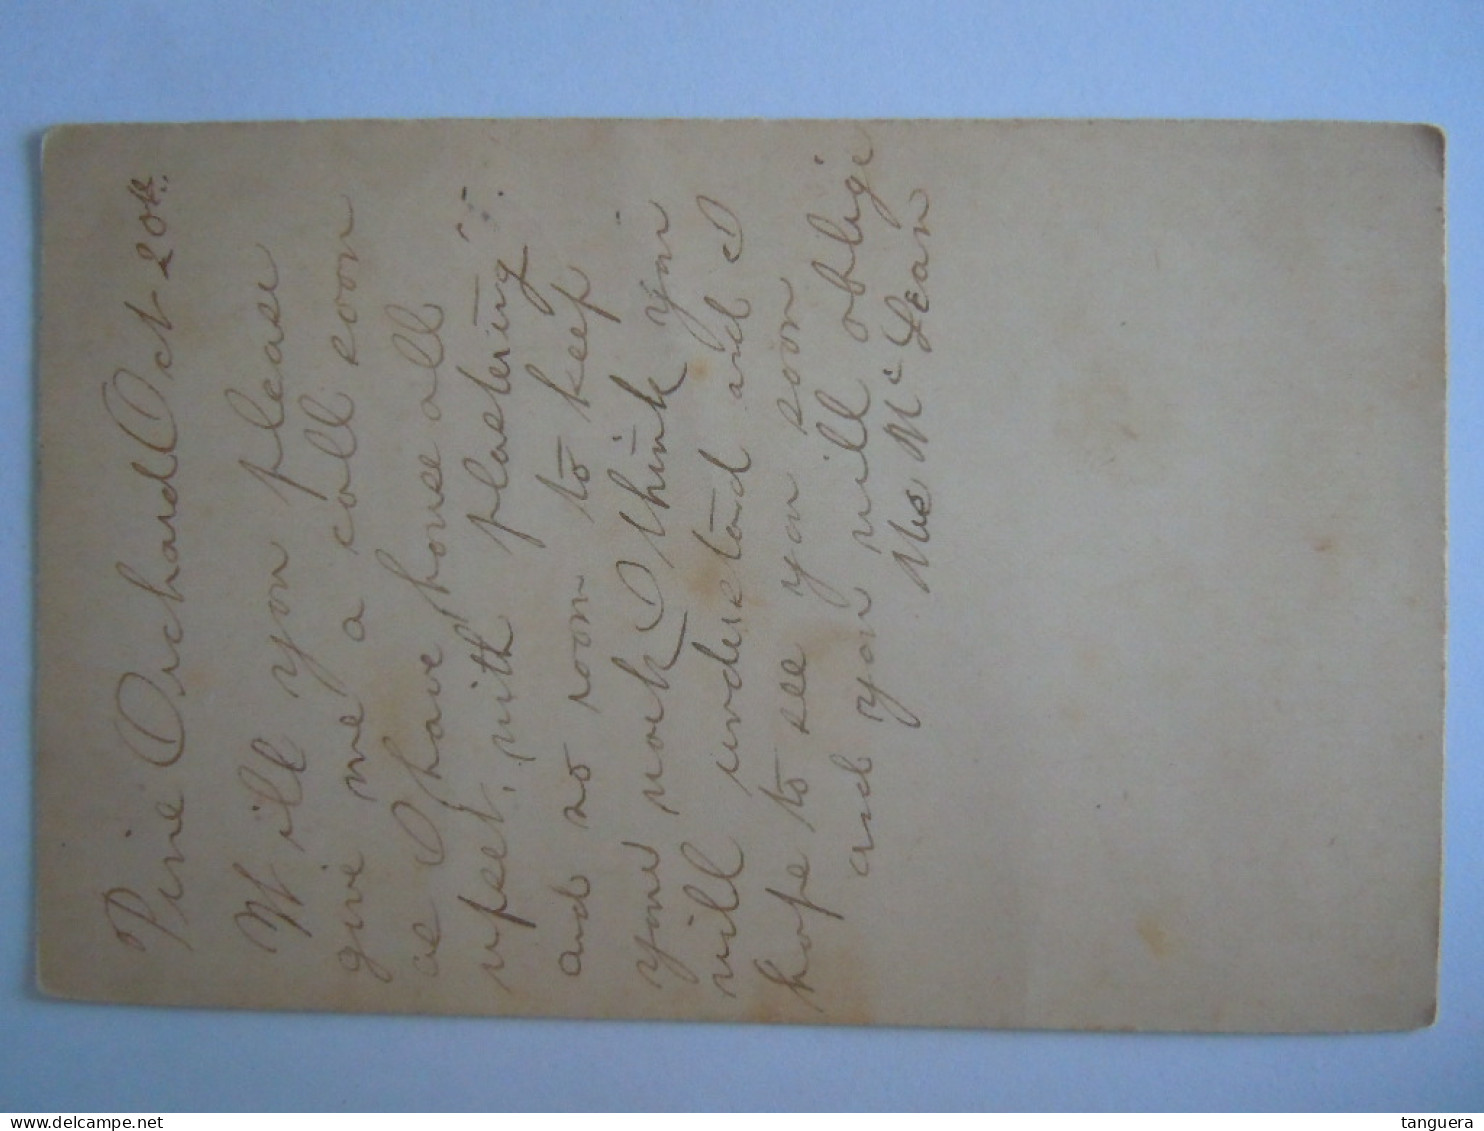 Pine Orchard Oct 20th
Will you please
give me a call soon
as I have house all
upset, with plastering
and no room to keep
your work I think you
will understand and I
hope to see you soon
and you will oblige
Mrs McLean
www.delcampe.net
tanguera